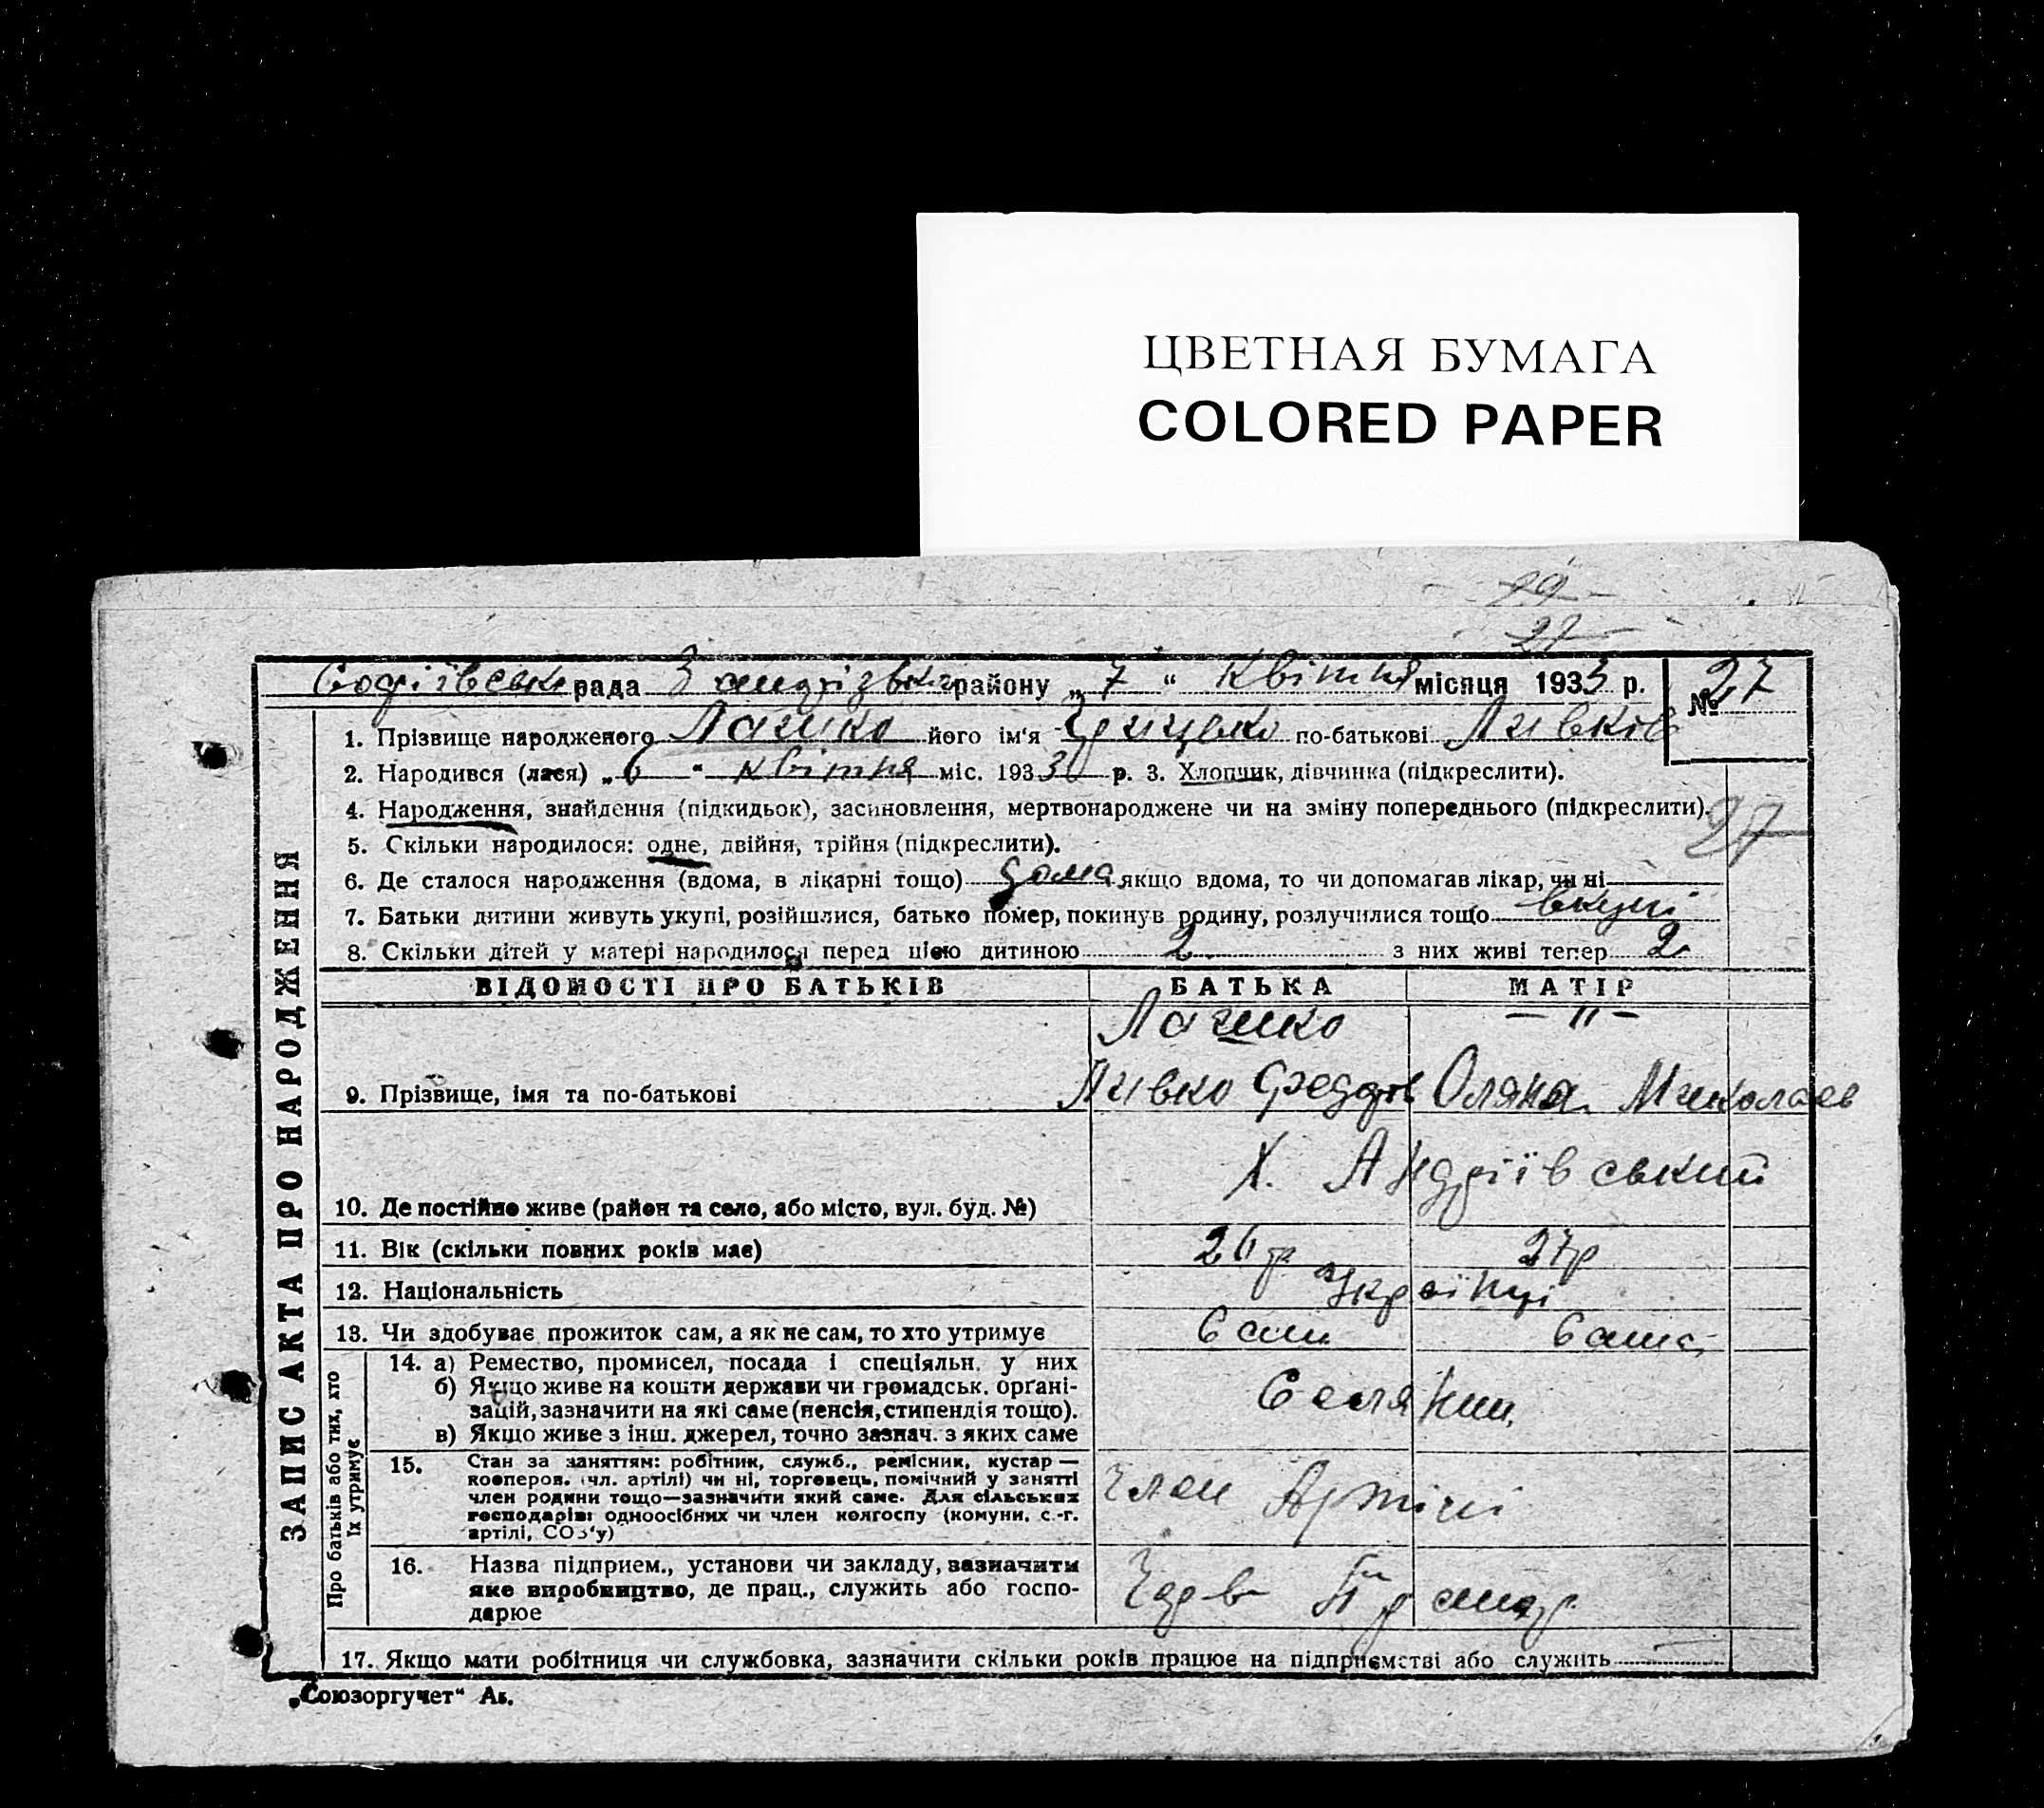 ЦВЕТНАЯ БУМАГА
COLORED PAPER
19
27
Софіївськ рада району „ 7 “ Квітня місяця 1933 р. № 27
1. Прізвище народженого Лашко його ім'я Грицько по-батькові Ливків
2. Народився (лася) „ 6 “ квітня міс. 1933 р. 3. Хлопчик, дівчинка (підкреслити).
4. Народження, знайдення (підкидьок), засиновлення, мертвонароджене чи на зміну попереднього (підкреслити).
27
5. Скільки народилося: одне, двійня, трійня (підкреслити).
6. Де сталося народження (вдома, в лікарні тощо) дома якщо вдома, то чи допомагав лікар, чи ні
7. Батьки дитини живуть укупі, розійшлися, батько помер, покинув родину, розлучилися тощо вкупі
8. Скільки дітей у матері народилося перед цією дитиною 2 з них живі тепер 2
ЗАПИС АКТА ПРО НАРОДЖЕННЯ
ВІДОМОСТІ ПРО БАТЬКІВ БАТЬКА МАТІР
Лашко — " —
9. Прізвище, імя та по-батькові Ливко Федорів Оляна Миколаев
10. Де постійно живе (район та село, або місто, вул. буд. №) Х. Андріївський
11. Вік (скільки повних років має) 26 р 27р
12. Національність Українці
13. Чи здобуває прожиток сам, а як не сам, то хто утримує Сам Сама
Про батьків або тих, хто їх утримує
14. а) Ремество, промисел, посада і спеціяльн. у них
б) Якщо живе на кошти держави чи громадськ. орґані-
зацій, зазначити на які саме (пенсія, стипендія тощо).
в) Якщо живе з інш. джерел, точно зазнач. з яких саме
Селянин
15. Стан за заняттям: робітник, служб., ремісник, кустар —
кооперов. (чл. артілі) чи ні, торговець, помічний у занятті
член родини тощо—зазначити який саме. Для сільських
господарів: одноосібних чи член колгоспу (комуни, с.-г.
артілі, СОЗ'у)
Член Артілі
16. Назва підприєм., установи чи закладу, зазначити
яке виробництво, де прац., служить або госпо-
дарюе
17. Якщо мати робітниця чи службовка, зазначити скільки років працює на підприємстві або служить
„Союзоргучет“